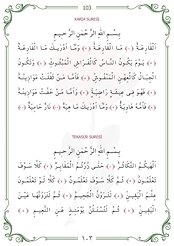 103
KARİA SURESİ
بِسْمِ اللّٰهِ الرَّحْمٰنِ الرَّحِيمِ
اَلْقَارِعَةُ ﴿١﴾ مَا الْقَارِعَةُ ﴿٢﴾ وَمَا اَدْرٰيكَ مَا الْقَارِعَةُ
﴿٣﴾ يَوْمَ يَكُونُ النَّاسُ كَالْفَرَاشِ الْمَبْثُوثِ ﴿٤﴾ وَتَكُونُ
الْجِبَالُ كَالْعِهْنِ الْمَنْفُوشِ ﴿٥﴾ فَاَمَّا مَنْ ثَقُلَتْ مَوَازِينُهُ
﴿٦﴾ فَهُوَ فِى عِيشَةٍ رَاضِيَةٍ ﴿٧﴾ وَاَمَّا مَنْ خَفَّتْ مَوَازِينُهُ
﴿٨﴾ فَاُمُّهُ هَاوِيَةٌ ﴿٩﴾ وَمَا اَدْرٰيكَ مَا هِيَهْ ﴿١٠﴾ نَارٌ حَامِيَةٌ ﴿١١﴾
TEKASUR SURESİ
بِسْمِ اللّٰهِ الرَّحْمٰنِ الرَّحِيمِ
اَلْهٰيكُمُ التَّكَاثُرُ ﴿١﴾ حَتّٰى زُرْتُمُ الْمَقَابِرَ ﴿٢﴾ كَلَّا سَوْفَ
تَعْلَمُونَ ﴿٣﴾ ثُمَّ كَلَّا سَوْفَ تَعْلَمُونَ ﴿٤﴾ كَلَّا لَوْ تَعْلَمُونَ
عِلْمَ الْيَقِينِ ﴿٥﴾ لَتَرَوُنَّ الْجَحِيمَ ﴿٦﴾ ثُمَّ لَتَرَوُنَّهَا عَيْنَ
الْيَقِينِ ﴿٧﴾ ثُمَّ لَتُسْئَلُنَّ يَوْمَئِذٍ عَنِ النَّعِيمِ ﴿٨﴾
١٠٣